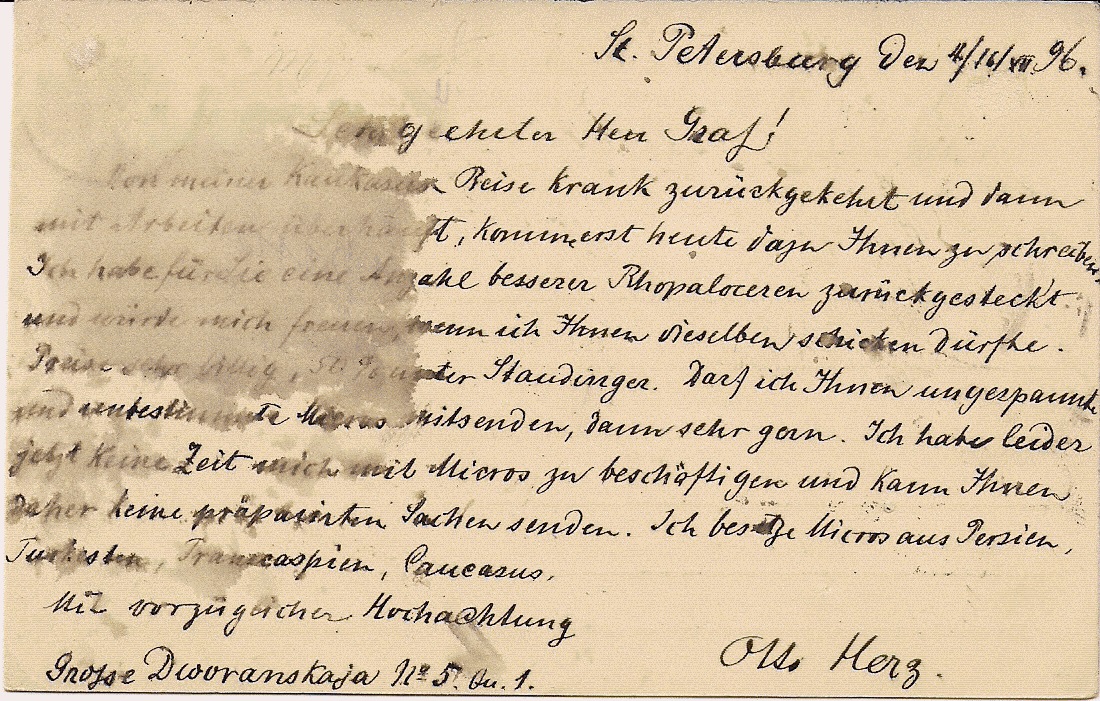 St. Petersburg den 4/16/XII 96.
Sehr geehrter Herr Graf!
Von meiner Kaukasus Reise krank zurückgekehrt und dann
mit Arbeiten überhäuft, komm erst heute dazu Ihnen zu schreiben.
Ich habe für Sie eine Anzahl besserer Rhopaloceren zurückgesteckt
und würde mich freuen, wenn ich Ihnen dieselben schicken dürfte.
Preise sehr billig, unter Staudinger. Darf ich Ihnen ungespannte
und unbestimmte Micros mitsenden, dann sehr gern. Ich habe leider
jetzt keine Zeit mich mit Micros zu beschäftigen und kann Ihnen
daher keine präparirten Sachen senden. Ich besitze Micros aus Persien,
Turkestan, Transcaspien, Caucasus.
Mit vorzüglicher Hochachtung
Otto Herz.
Grosse Dworanskaja No 5. Qu. 1.